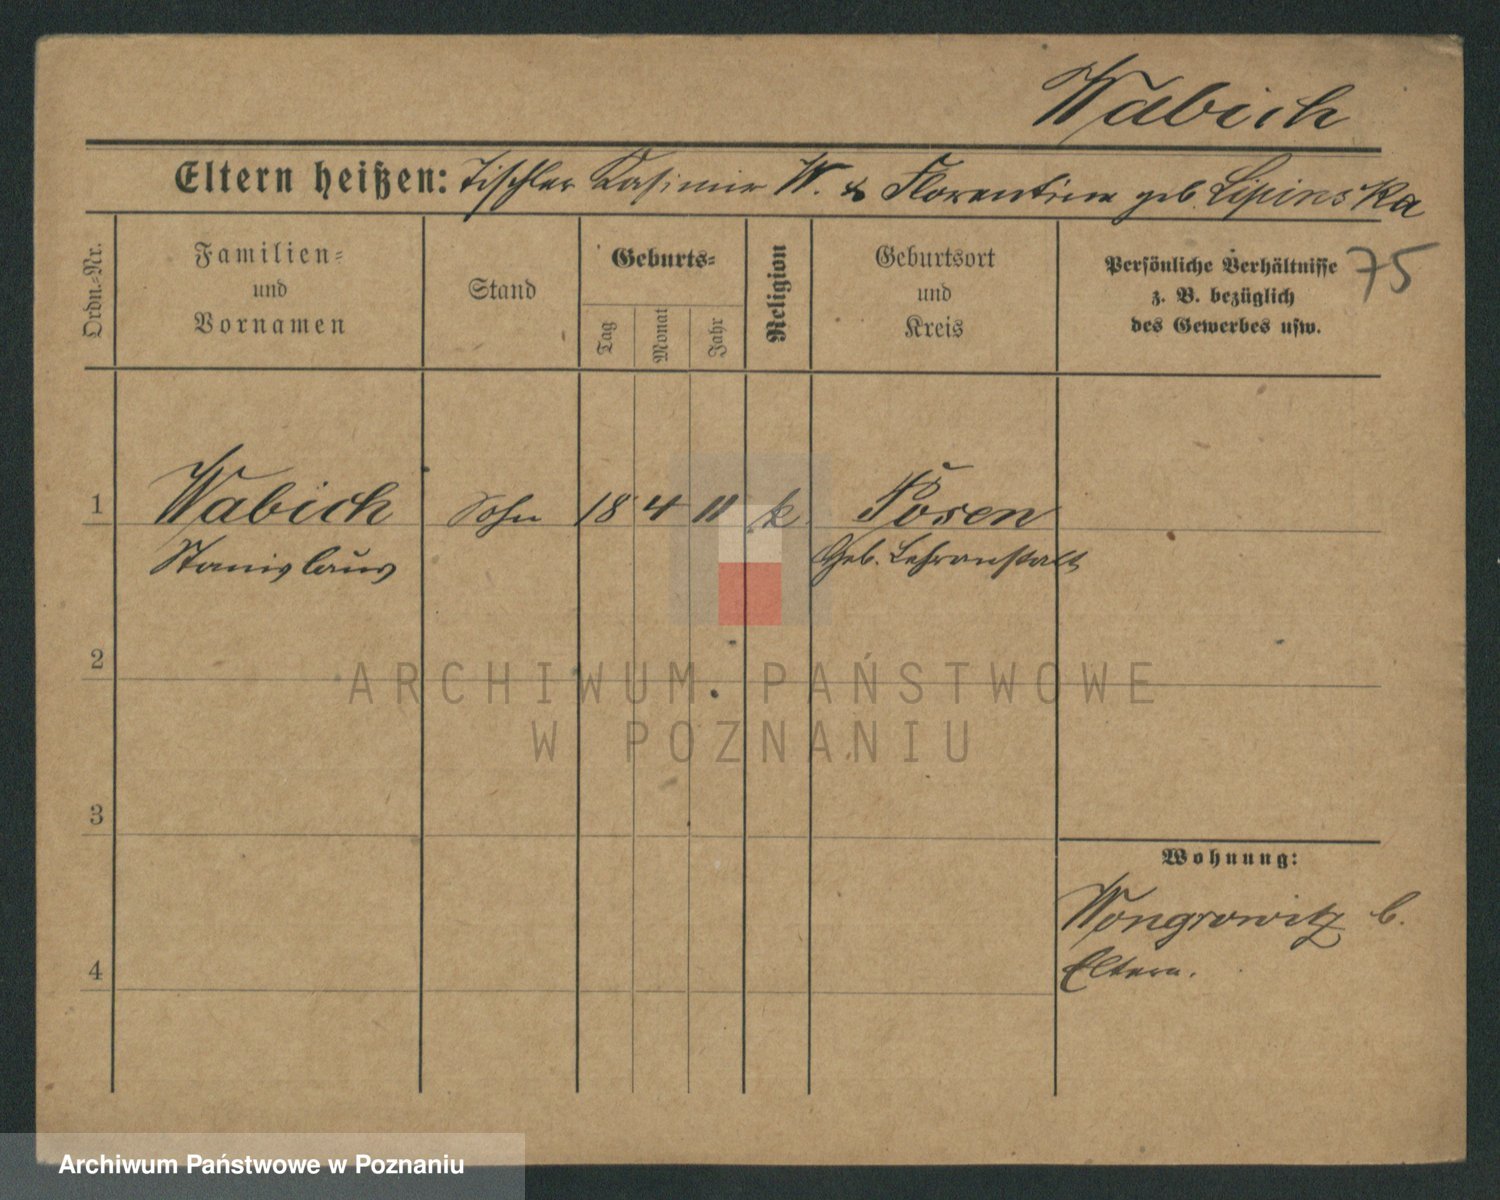 Wabich
Eltern heißen: Tischler Kasimir W. & Florentine geb. Lipinska
75
Ordn.-Nr.
Familien-
und
Vornamen
Stand
Geburts-
Tag
Monat
Jahr
Religion
Geburtsort
und
Kreis
Persönliche Verhältnisse
z. B. bezüglich
des Gewerbes usw.
1 Wabich Sohn 18 4 11 k Posen
Stanislaus Geb. Lehranstalt
2
ARCHIWUM PAŃSTWOWE
W POZNANIU
3
Wohnung:
Wongrowitz b.
Eltern.
4
Archiwum Państwowe w Poznaniu